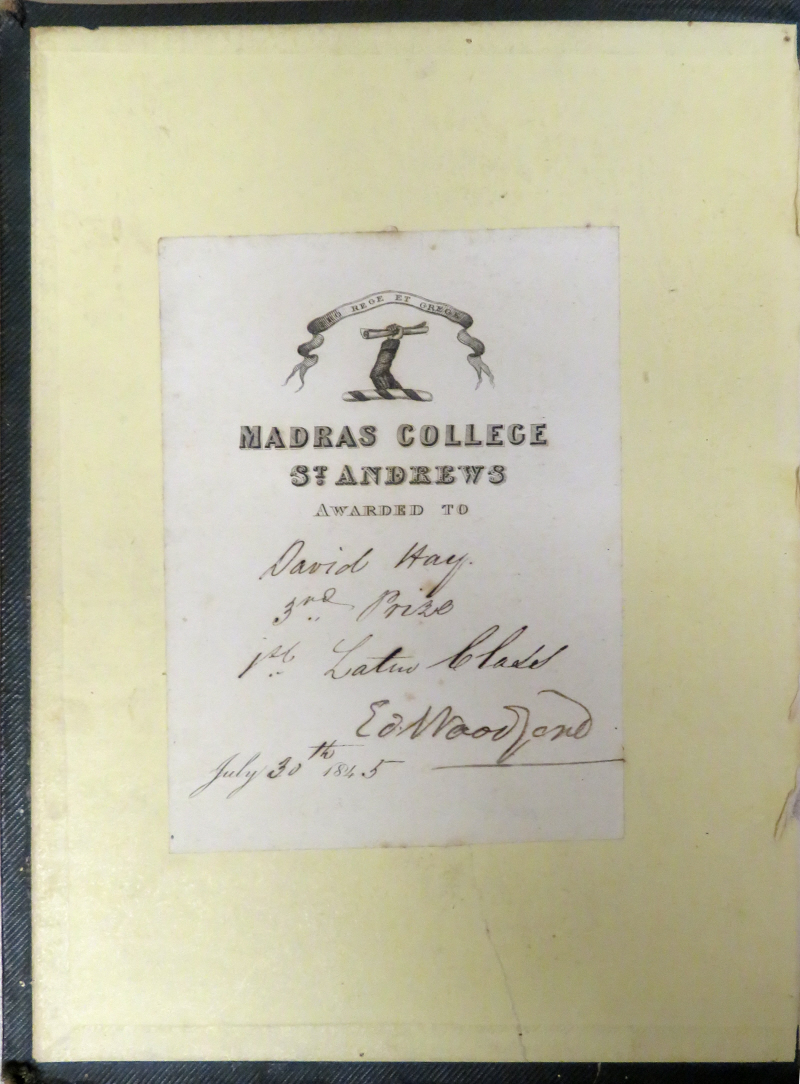 PRO REGE ET GREGE
MADRAS COLLEGE
ST ANDREWS
AWARDED TO
David Hay.
3rd Prize
1st Latin Class
Ed Woodford
July 30th 1845